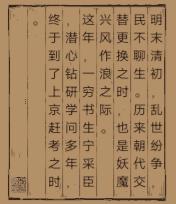 明末清初，乱世纷争，
民不聊生。历来朝代交
替更换之时，也是妖魔
兴风作浪之际。
这年，一穷书生宁采臣
，潜心钻研学问多年，
终于到了上京赶考之时